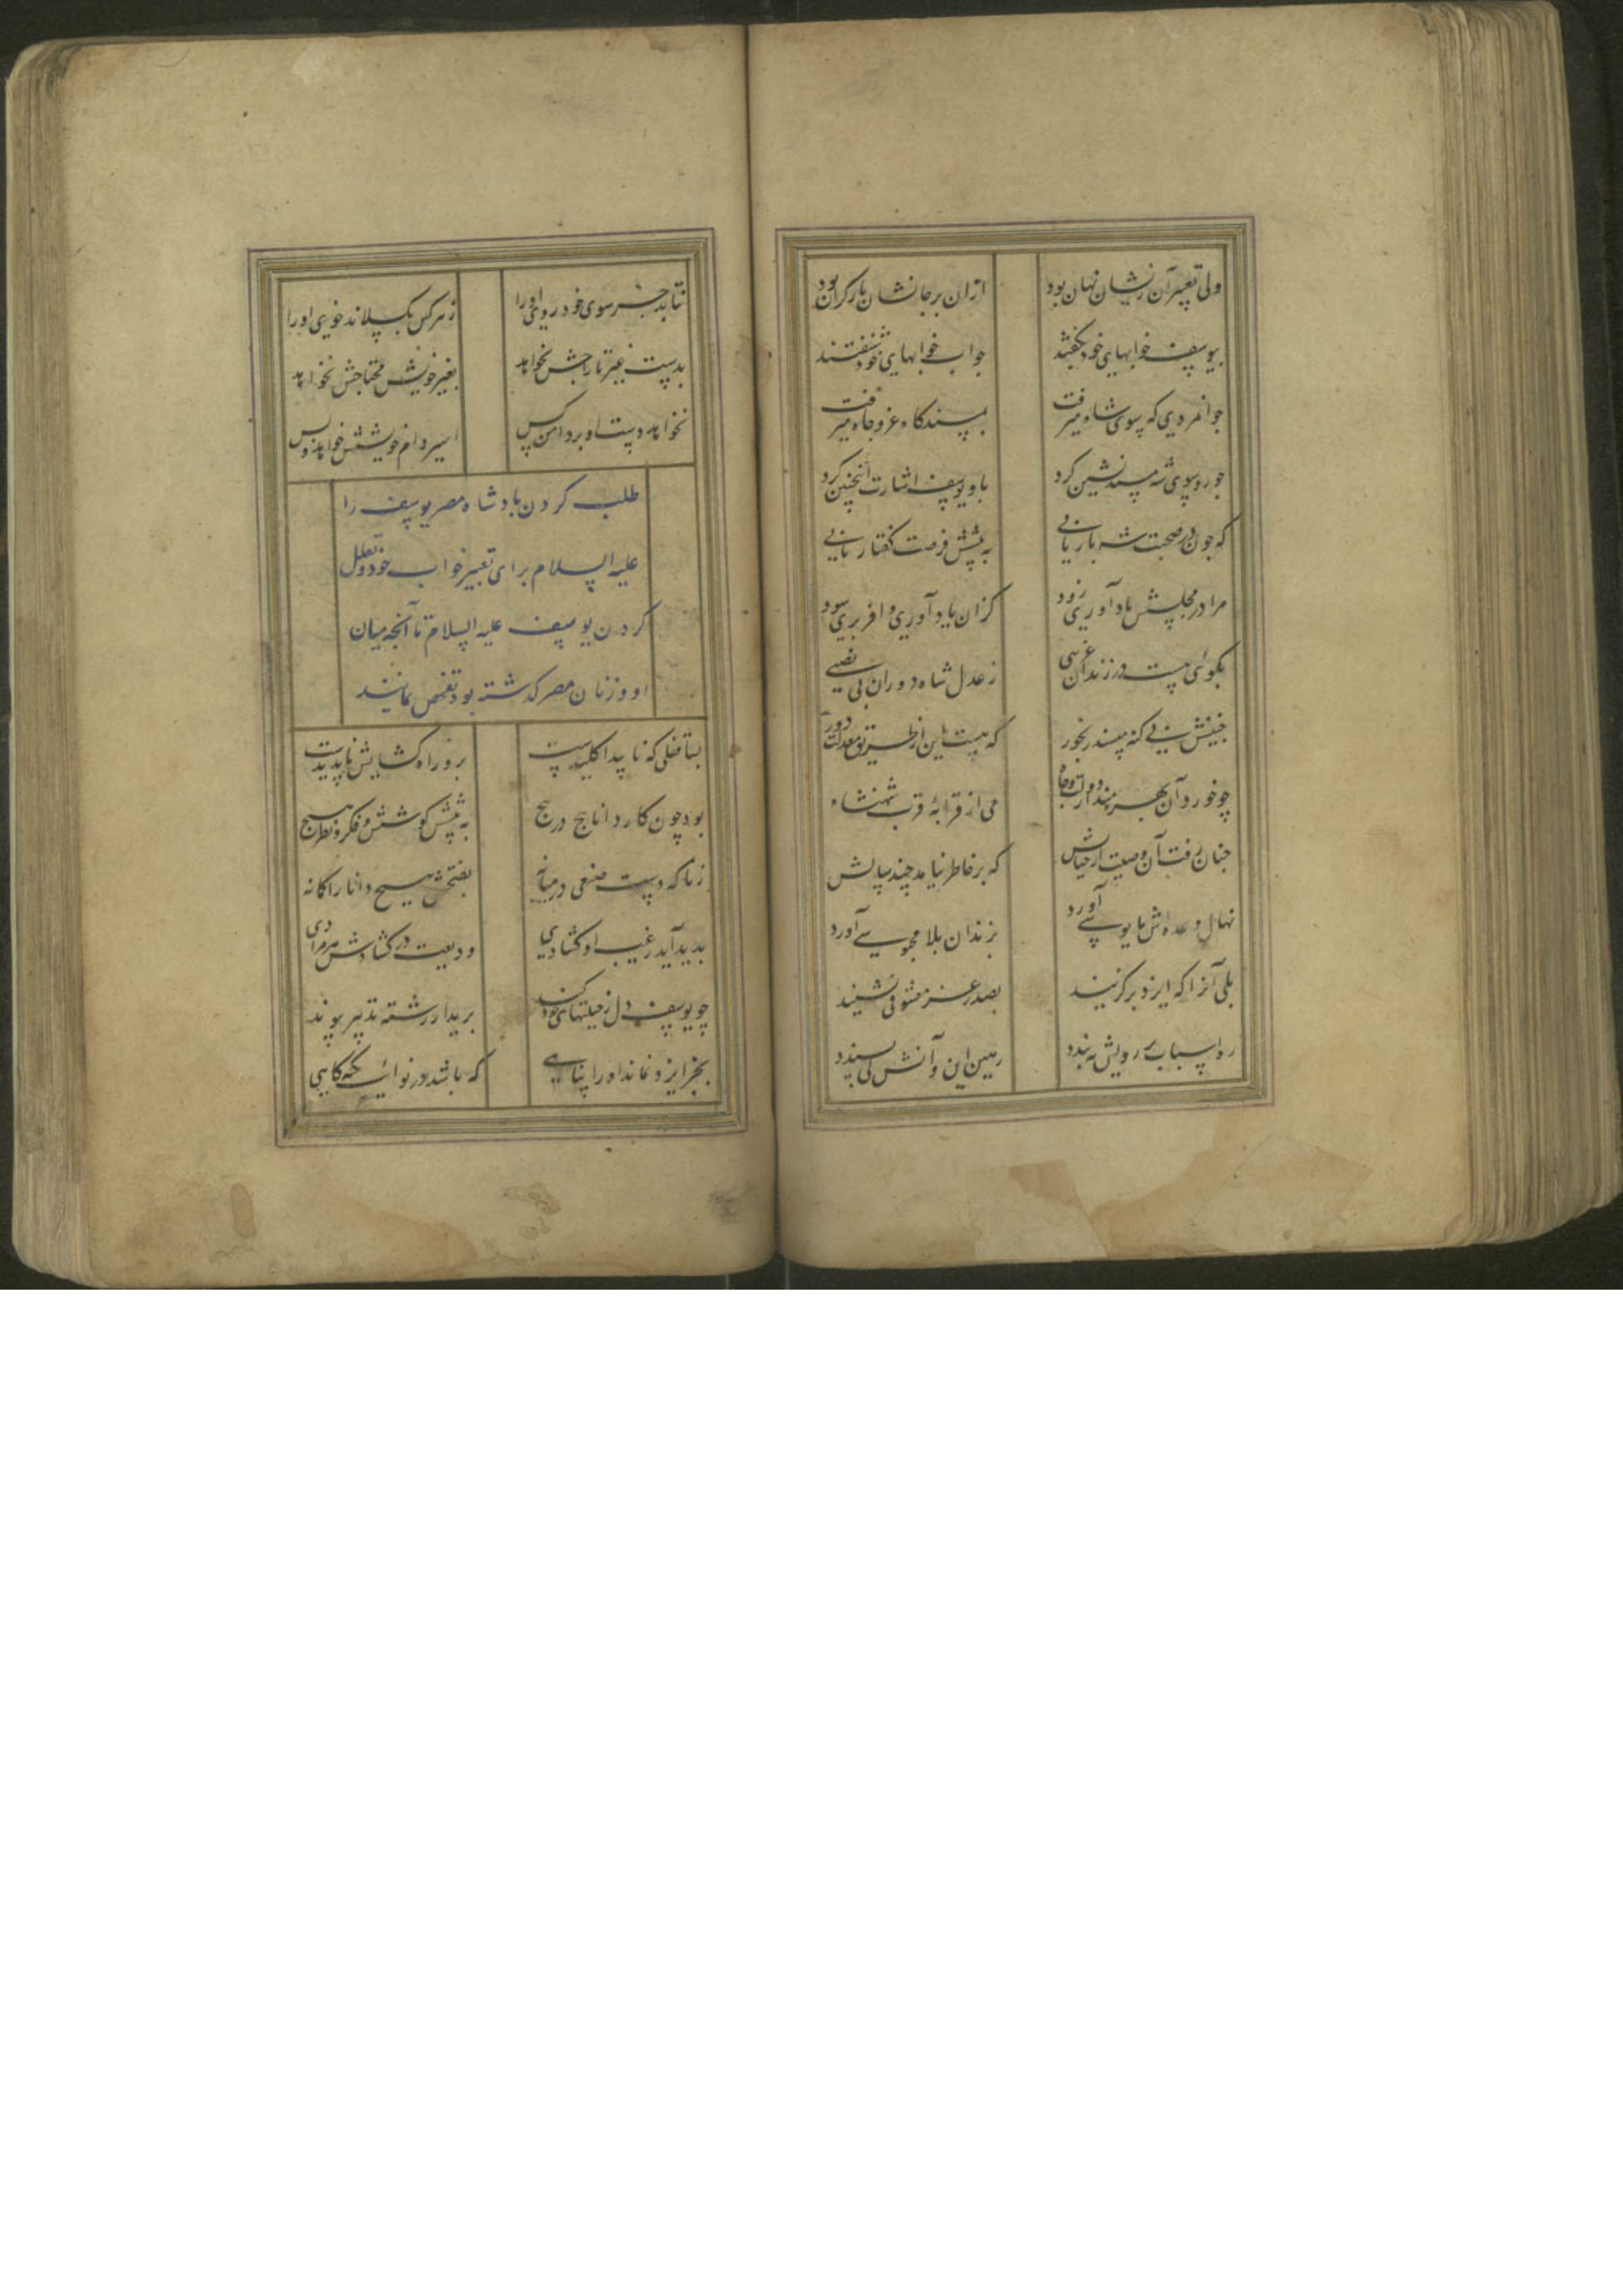 ولی تعبیر آن زیشان نهان بود ازان بر جانشان بار گران بود
بیوسف خوابهای خود بگفتند جواب خوابهای خود شنفتند
جوانمردی که سوی شاه میرفت بمسندگاه عز و جاه میرفت
چو رو سوی شه مسندنشین کرد باو یوسف اشارت اینچنین کرد
که چون در صحبت شه باریابی به پیشش فرصت گفتار یابی
مرا در مجلسش یادآوری زود کزان یادآوری وافر بری سود
بگوئی هست در زندان غریبی ز عدل شاه دوران بی نصیبی
چنینش بی گنه مپسند رنجور که هست این از طریق معدلت دور
چو خورد آن بهره مند از دولت و جاه می از قرابهٔ قرب شهنشاه
چنان رفت آن وصیت از خیالش که بر خاطر نیامد چند سالش
نهال وعده اش مایوسی آورد بزندان بلا محبوسی آورد
بلی آنرا که ایزد برگزیند بصدر عز معشوقی نشیند
ره اسباب بر رویش ببندد رهین این و آنش کی پسندد
نتابد جز سوی خود روی او را ز هر کس بگسلاند خوی او را
بدست غیر تاراجش نخواهد بغیر خویش محتاجش نخواهد
نخواهد دست او بر دامن کس اسیر دام خویشش خواهد و بس
طلب کردن پادشاه مصر یوسف را
علیه السلام برای تعبیر خواب خود و تعلل
کردن یوسف علیه السلام تا آنچه میان
او و زنان مصر گذشته بود تفحص نمایند
بسا قفلی که ناپیدا کلیدست برو راه گشایش ناپدیدست
بود چون کار دانا پیچ در پیچ به پیشش کوشش و فکر و نظر هیچ
ز ناگه دست صنعی در میانه بفتحش هیچ دانا را گمانه
پدید آید ز غیب او گشادی ودیعت در گشادش هر مرادی
چو یوسف دل ز حیلتهای خود کند برید از رشته تدبیر پیوند
بجز ایزد نماند او را پناهی که باشد در نوائب تکیه گاهی